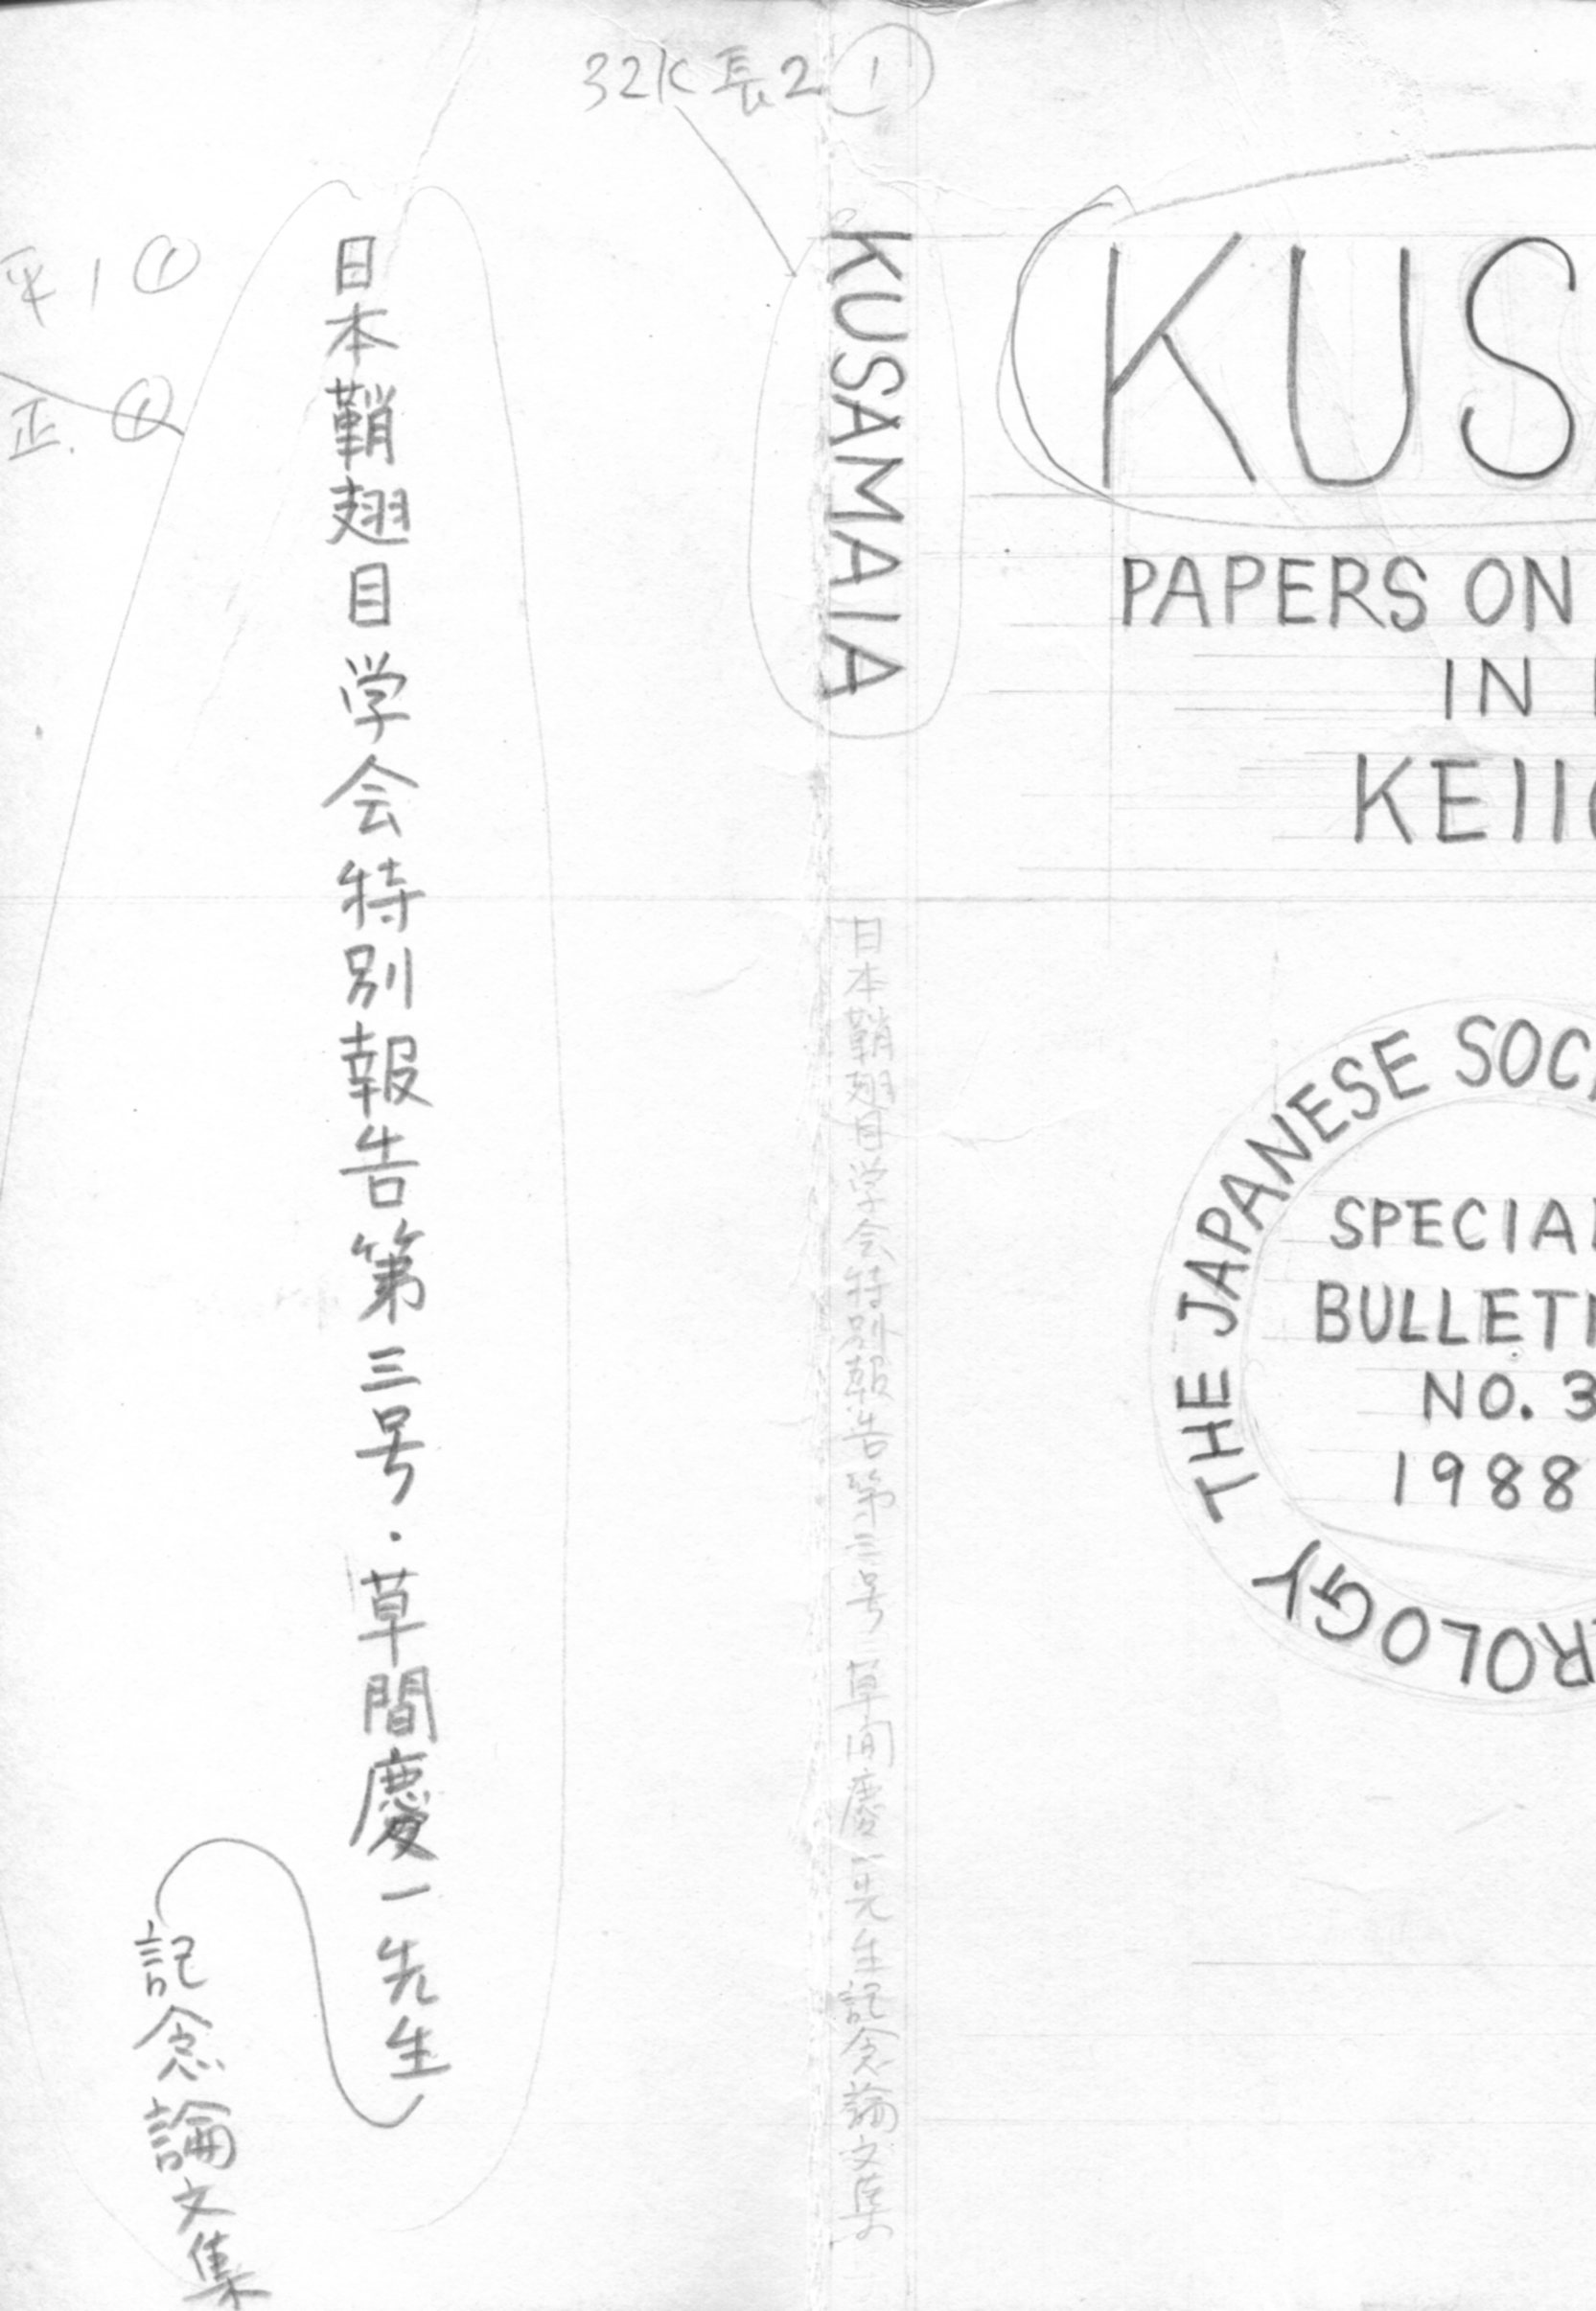 32K 長2 ①
平1 ①
正. ①
日本鞘翅目学会特別報告第三号・草間慶一先生
記念論文集
KUSAMAIA
日本鞘翅目学会特別報告第三号 草間慶一先生記念論文集
KUS
PAPERS ON
IN
KEII
THE JAPANESE SOC
SPECIAL
BULLETI
NO. 3
1988
ROLOGY